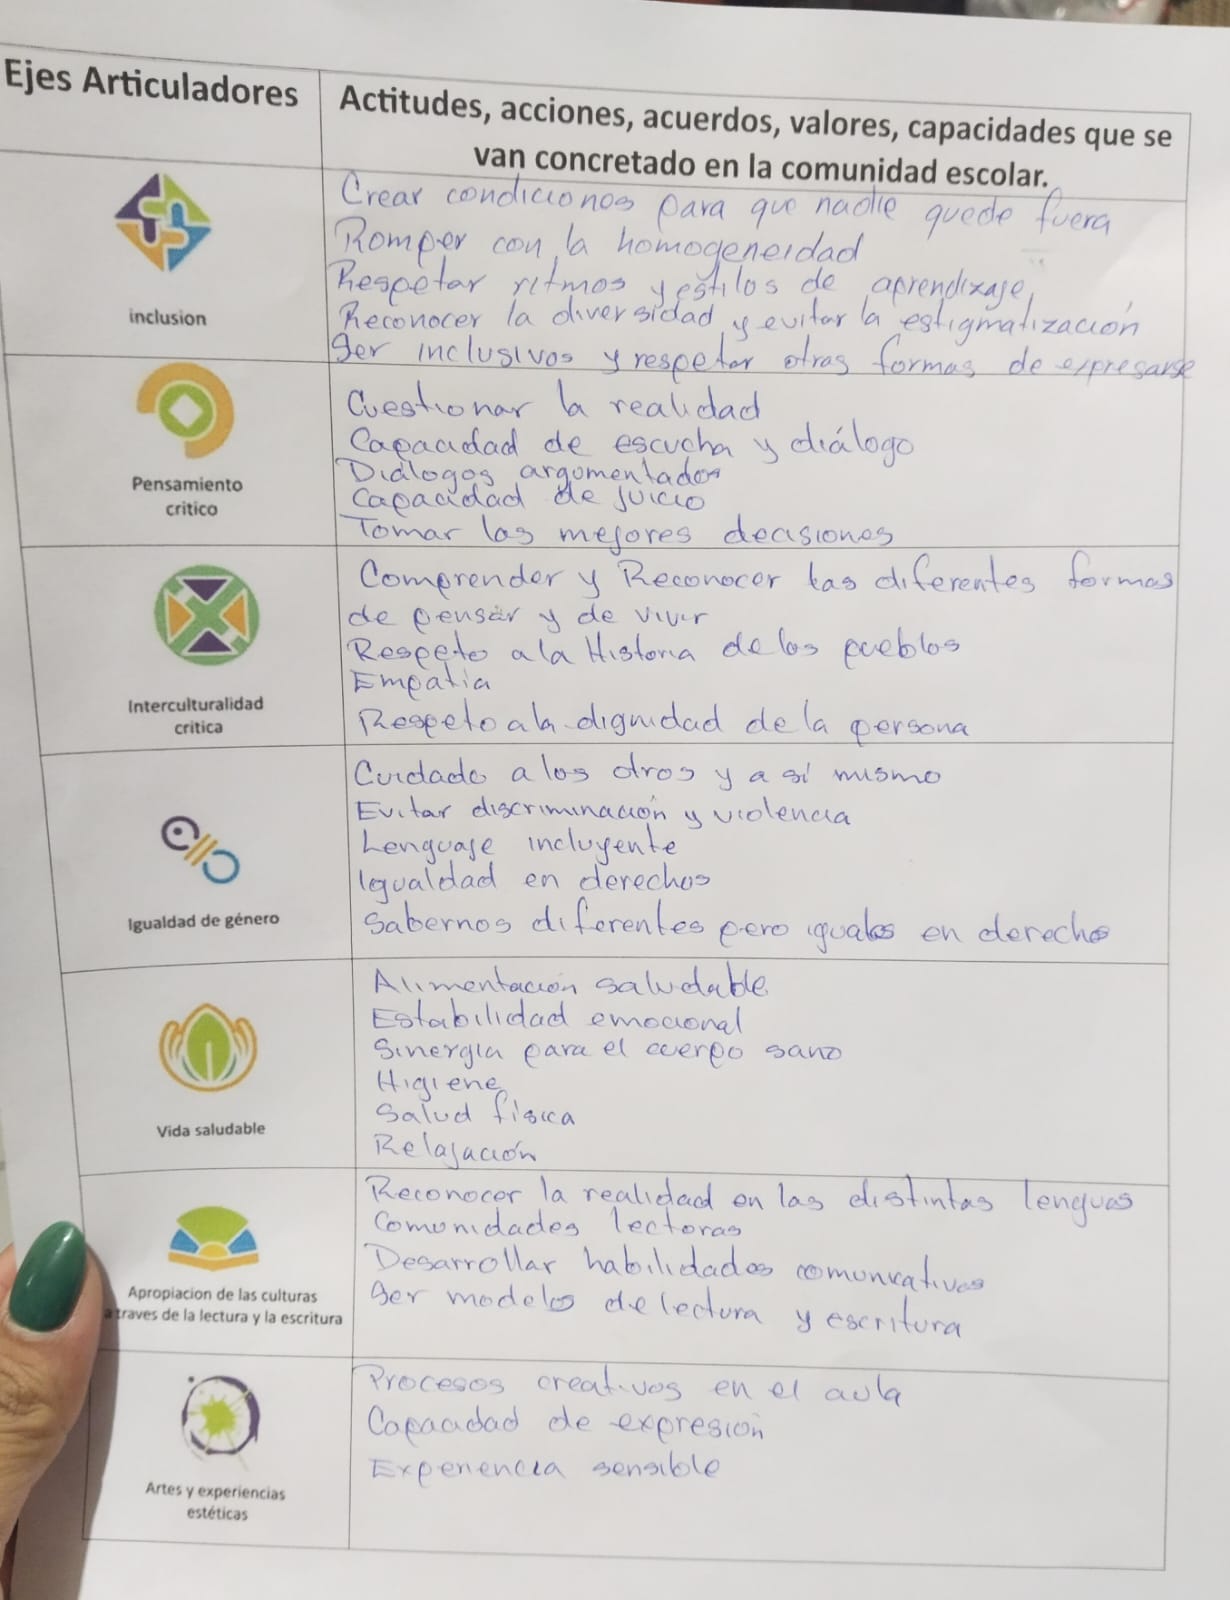 Ejes Articuladores
Actitudes, acciones, acuerdos, valores, capacidades que se
van concretado en la comunidad escolar.
inclusion
Crear condiciones para que nadie quede fuera
Romper con la homogeneidad
Respetar ritmos y estilos de aprendizaje,
Reconocer la diversidad y evitar la estigmatización
Ser inclusivos y respetar otras formas de expresarse
Pensamiento
critico
Cuestionar la realidad
Capacidad de escucha y diálogo
Diálogos argumentados
Capacidad de juicio
Tomar las mejores decisiones
Interculturalidad
critica
Comprender y Reconocer las diferentes formas
de pensar y de vivir
Respeto a la Historia de los pueblos
Empatia
Respeto a la dignidad de la persona
Igualdad de género
Cuidado a los otros y a sí mismo
Evitar discriminación y violencia
Lenguaje incluyente
Igualdad en derechos
Sabernos diferentes pero iguales en derecho
Vida saludable
Alimentación saludable
Estabilidad emocional
Sinergia para el cuerpo sano
Higiene
Salud física
Relajación
Apropiacion de las culturas
a traves de la lectura y la escritura
Reconocer la realidad en las distintas lenguas
Comunidades lectoras
Desarrollar habilidades comunicativas
Ser modelos de lectura y escritura
Artes y experiencias
estéticas
Procesos creativos en el aula
Capacidad de expresión
Experiencia sensible